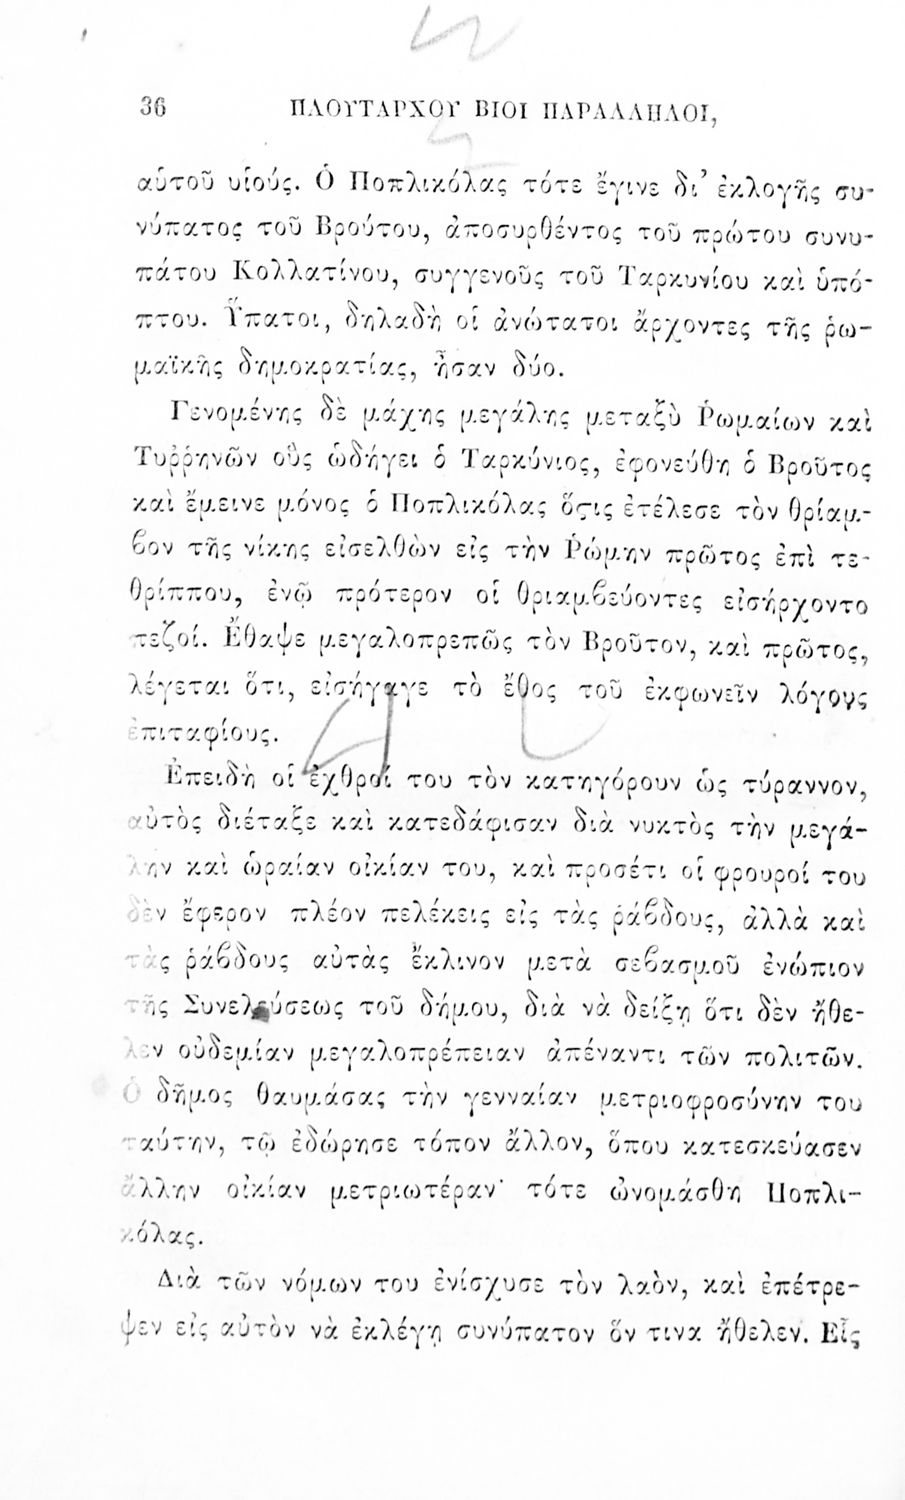 36 ΠΛΟΥΤΑΡΧΟΥ ΒΙΟΙ ΠΑΡΑΛΛΗΛΟΙ,
αὑτοῦ υἱούς. Ὁ Ποπλικόλας τότε ἔγινε δι’ ἐκλογῆς συ-
νύπατος τοῦ Βρούτου, ἀποσυρθέντος τοῦ πρώτου συνυ-
πάτου Κολλατίνου, συγγενοῦς τοῦ Ταρκυνίου καὶ ὑπό-
πτου. Ὕπατοι, δηλαδὴ οἱ ἀνώτατοι ἄρχοντες τῆς ῥω-
μαϊκῆς δημοκρατίας, ἦσαν δύο.
Γενομένης δὲ μάχης μεγάλης μεταξὺ Ῥωμαίων καὶ
Τυῤῥηνῶν οὓς ὡδήγει ὁ Ταρκύνιος, ἐφονεύθη ὁ Βροῦτος
καὶ ἔμεινε μόνος ὁ Ποπλικόλας ὅϛις ἐτέλεσε τὸν θρίαμ-
βον τῆς νίκης εἰσελθὼν εἰς τὴν Ῥώμην πρῶτος ἐπὶ τε-
θρίππου, ἐνῷ πρότερον οἱ θριαμβεύοντες εἰσήρχοντο
πεζοί. Ἔθαψε μεγαλοπρεπῶς τὸν Βροῦτον, καὶ πρῶτος,
λέγεται ὅτι, εἰσήγαγε τὸ ἔθος τοῦ ἐκφωνεῖν λόγους
ἐπιταφίους.
Ἐπειδὴ οἱ ἐχθροί του τὸν κατηγόρουν ὡς τύραννον,
αὐτὸς διέταξε καὶ κατεδάφισαν διὰ νυκτὸς τὴν μεγά-
λην καὶ ὡραίαν οἰκίαν του, καὶ προσέτι οἱ φρουροί του
δὲν ἔφερον πλέον πελέκεις εἰς τὰς ῥάβδους, ἀλλὰ καὶ
τὰς ῥάβδους αὐτὰς ἔκλινον μετὰ σεβασμοῦ ἐνώπιον
τῆς Συνελεύσεως τοῦ δήμου, διὰ νὰ δείξῃ ὅτι δὲν ἤθε-
λεν οὐδεμίαν μεγαλοπρέπειαν ἀπέναντι τῶν πολιτῶν.
Ὁ δῆμος θαυμάσας τὴν γενναίαν μετριοφροσύνην του
ταύτην, τῷ ἐδώρησε τόπον ἄλλον, ὅπου κατεσκεύασεν
ἄλλην οἰκίαν μετριωτέραν· τότε ὠνομάσθη Ποπλι-
κόλας.
Διὰ τῶν νόμων του ἐνίσχυσε τὸν λαὸν, καὶ ἐπέτρε-
ψεν εἰς αὐτὸν νὰ ἐκλέγῃ συνύπατον ὅν τινα ἤθελεν. Εἷς